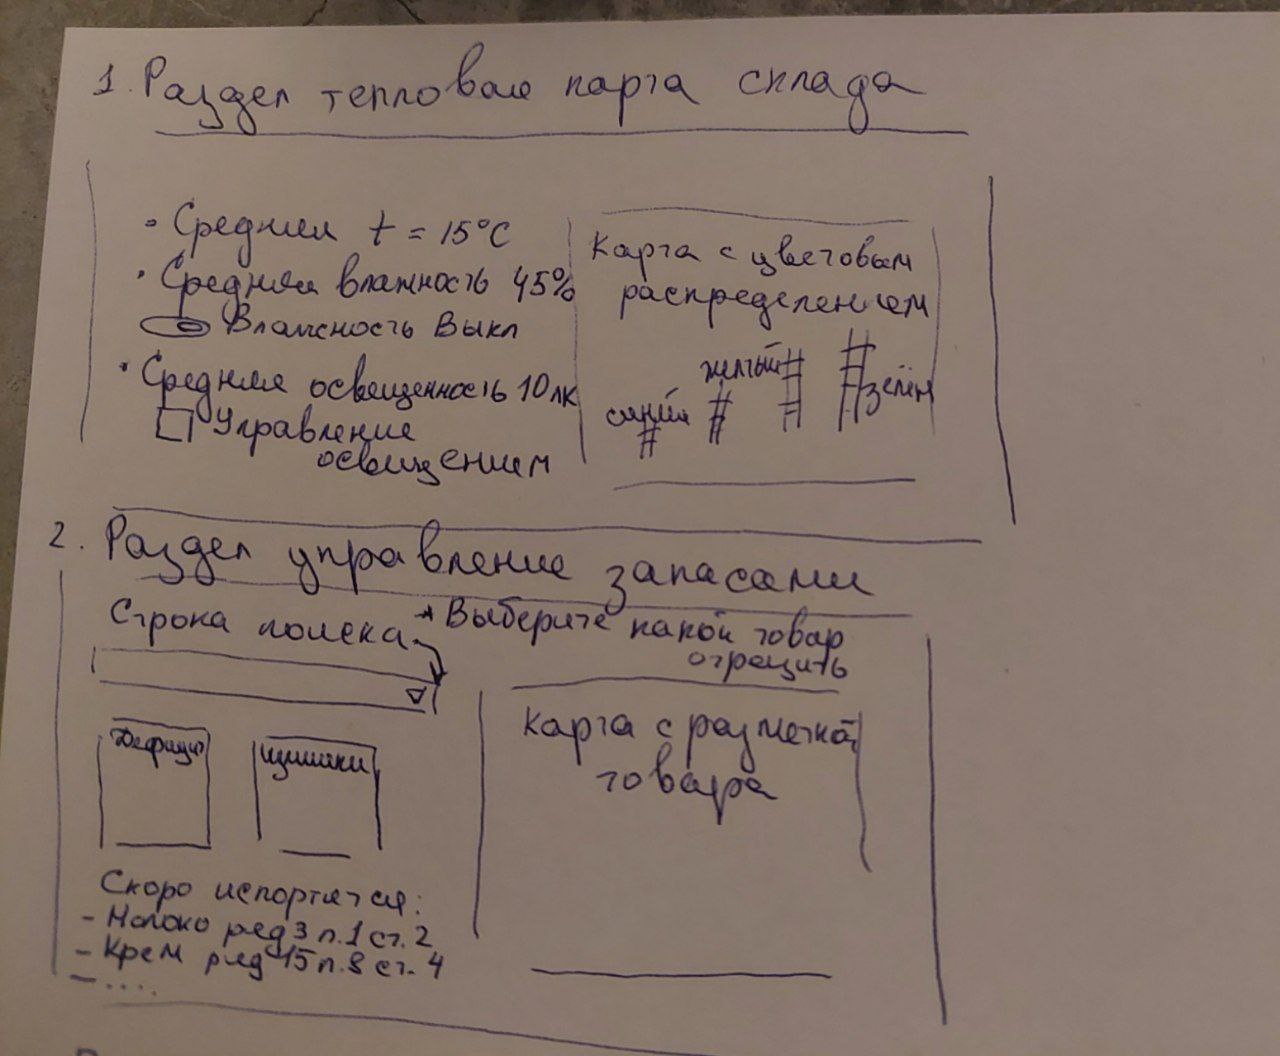 1. Раздел тепловая карта склада
• Средняя t = 15°C
• Средняя влажность 45%
Влажность Выкл
• Средняя освещенность 10 лк
Управление
освещением
Карта с цветовым
распределением
синий
желтый
зелён
2. Раздел управление запасами
Строка поиска
Выберите какой товар
отразить
Дефицит
излишки
Карта с разметкой
товара
Скоро испортятся:
- Молоко ряд 3 п.1 ст.2
- Крем ряд 15 п.8 ст.4
- ....